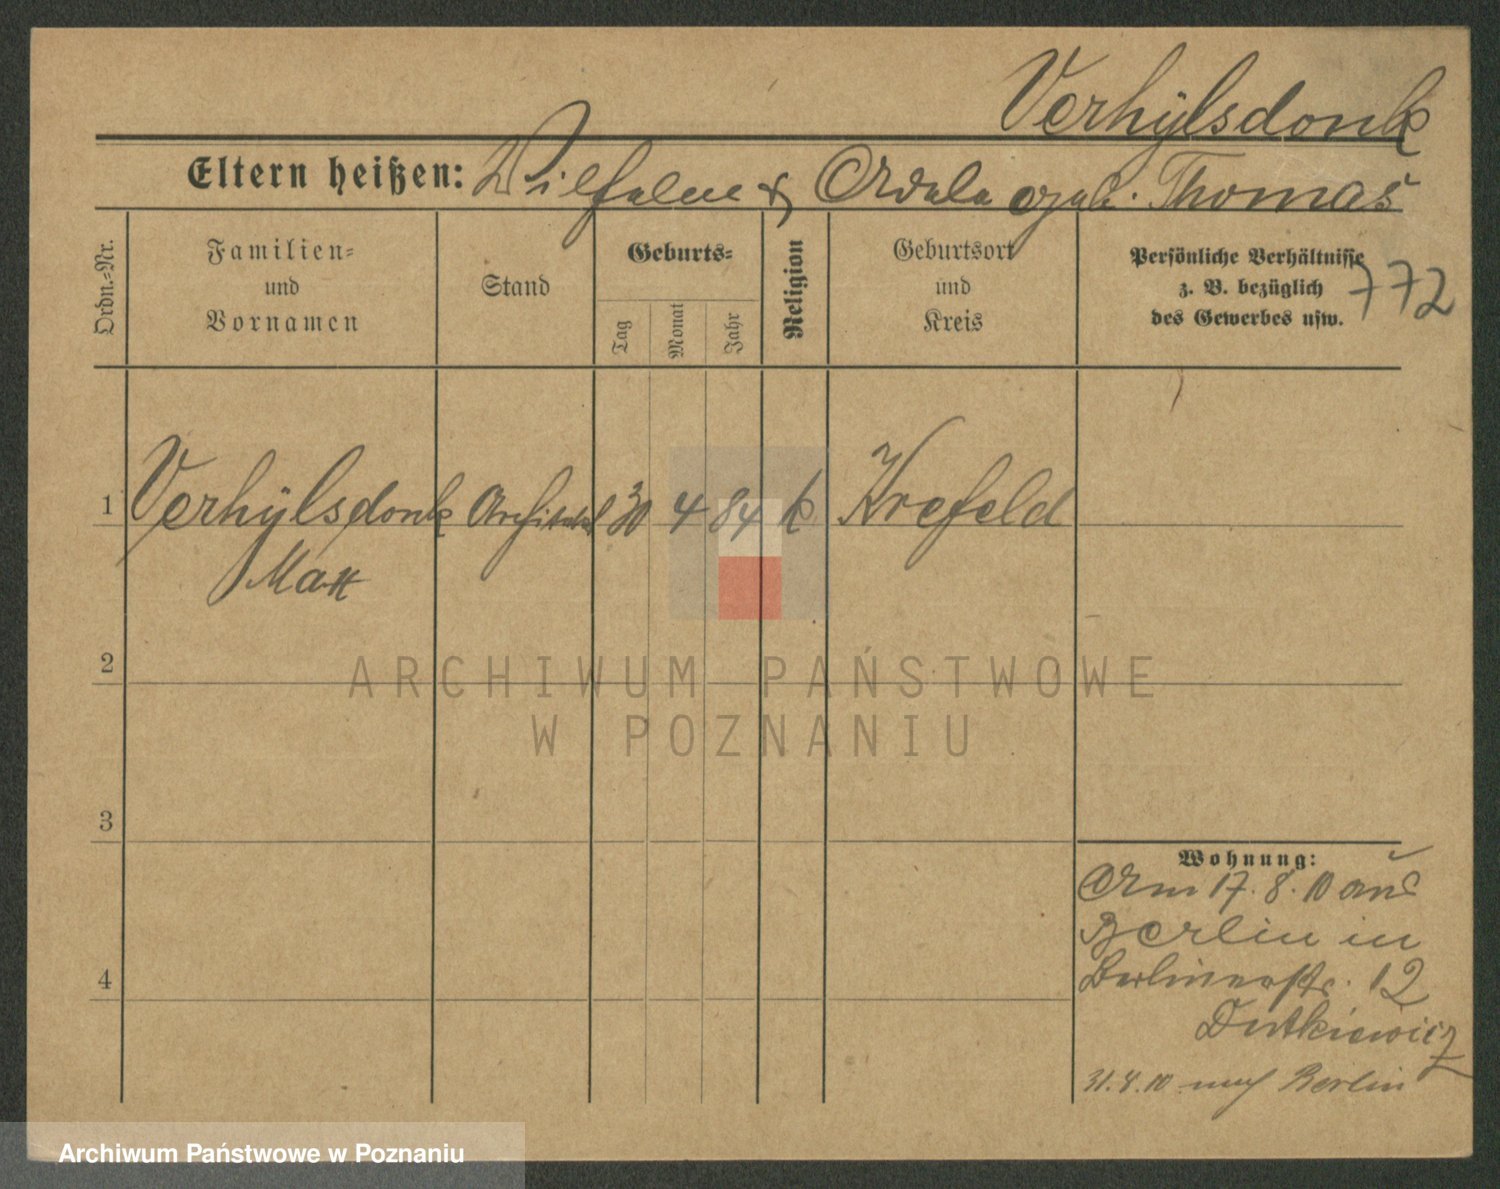 Verhÿlsdonk
Eltern heißen: Wilhelm & geb. Thomas
Ordn.-Nr.
Familien-
und
Vornamen
Stand
Geburts-
Tag
Monat
Jahr
Religion
Geburtsort
und
Kreis
Persönliche Verhältnisse
z. B. bezüglich
des Gewerbes usw.
772
1 Verhÿlsdonk Architekt 30 4 84 k Krefeld
2
ARCHIWUM PAŃSTWOWE
W POZNANIU
3
Wohnung:
Am 17. 8. 10 aus
Berlin in
4
Berlinerstr. 12
Dutkiewicz
31. 8. 10 nach Berlin
Archiwum Państwowe w Poznaniu